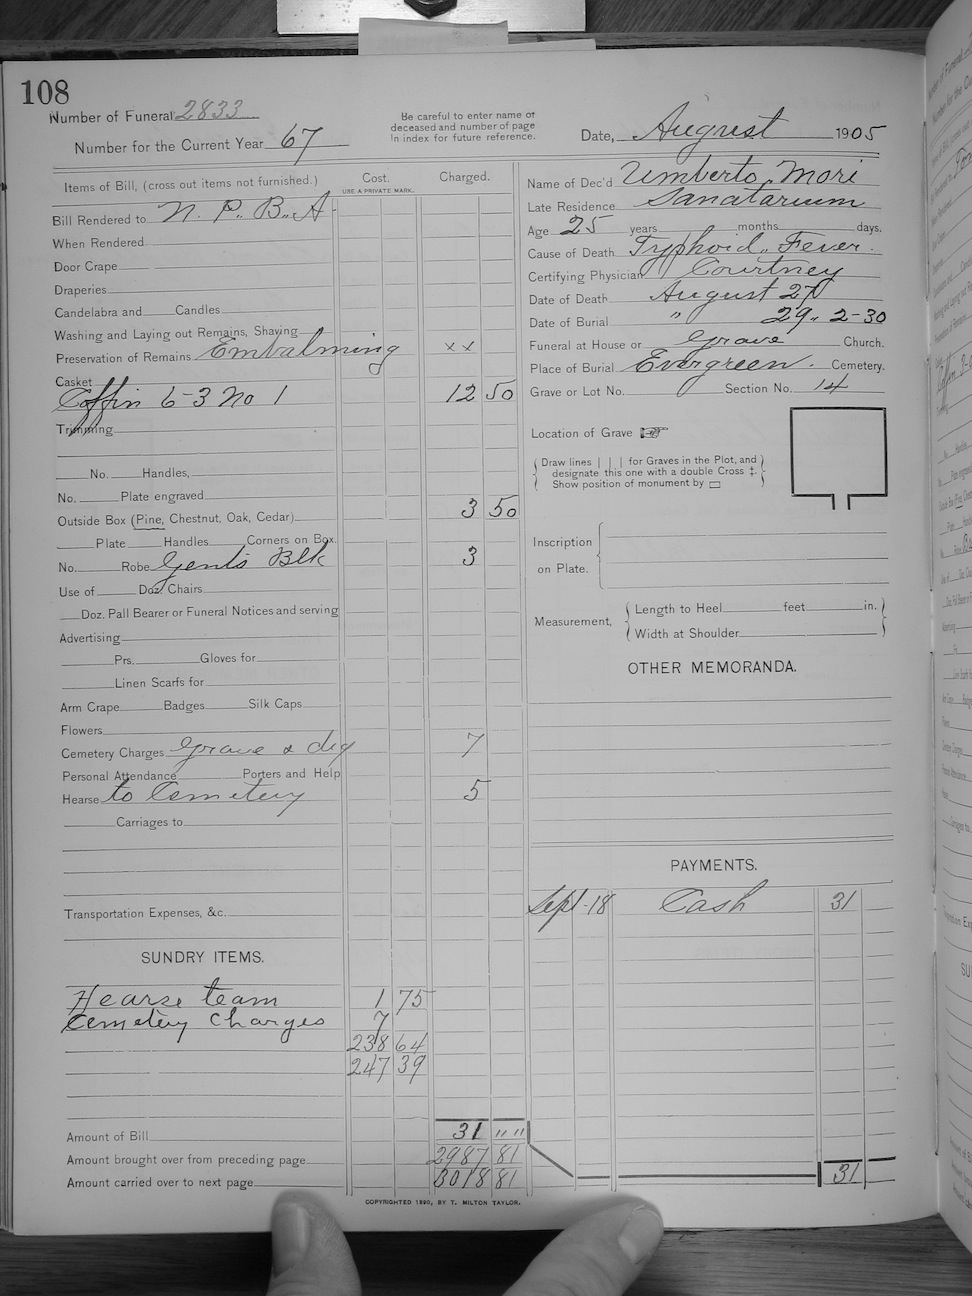 108
Number of Funeral 2833
Number for the Current Year 67
Be careful to enter name of
deceased and number of page
in index for future reference.
Date, August 1905
Items of Bill, (cross out items not furnished.) Cost. Charged.
USE A PRIVATE MARK.
Bill Rendered to N. P. B. A
When Rendered
Door Crape
Draperies
Candelabra and Candles
Washing and Laying out Remains, Shaving
Preservation of Remains Embalming xx
Casket
Coffin 6-3 No 1 12 50
Trimming
No. Handles,
No. Plate engraved
Outside Box (Pine, Chestnut, Oak, Cedar) 3 50
Plate Handles Corners on Box.
No. Robe Gents Blk 3
Use of Doz. Chairs
Doz. Pall Bearer or Funeral Notices and serving
Advertising
Prs. Gloves for
Linen Scarfs for
Arm Crape Badges Silk Caps
Flowers
Cemetery Charges Grave & dig 7
Personal Attendance Porters and Help
Hearse to Cemetery 5
Carriages to
Transportation Expenses, &c.
SUNDRY ITEMS.
Hearse team 1 75
Cemetery Charges 7
238 64
247 39
Amount of Bill 31 " "
Amount brought over from preceding page 2987 81
Amount carried over to next page 3018 81
Name of Dec'd Umberto Mori
Late Residence Sanatarium
Age 25 years months days.
Cause of Death Typhoid Fever.
Certifying Physician Courtney
Date of Death August 27
Date of Burial " 29. 2-30
Funeral at House or Grave Church.
Place of Burial Evergreen. Cemetery.
Grave or Lot No. Section No. 14
Location of Grave
Draw lines | | | for Graves in the Plot, and
designate this one with a double Cross ‡.
Show position of monument by ▭
Inscription
on Plate.
Measurement, Length to Heel feet in.
Width at Shoulder
OTHER MEMORANDA.
PAYMENTS.
Sept-18 Cash 31
31
COPYRIGHTED 1890, BY T. MILTON TAYLOR.